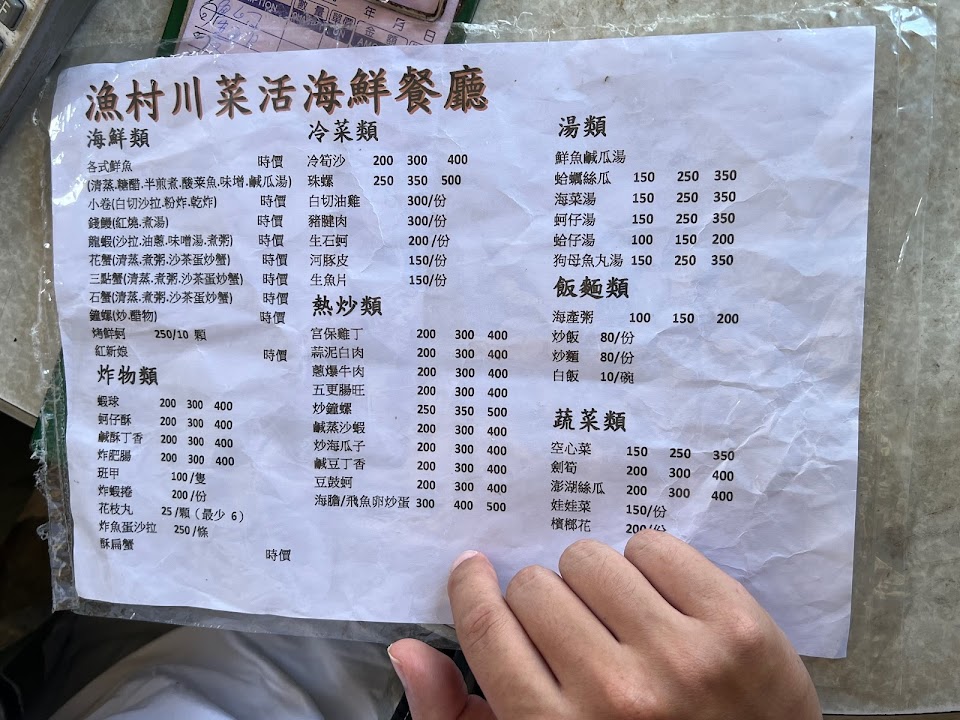 漁村川菜活海鮮餐廳
海鮮類
各式鮮魚 時價
(清蒸.糖醋.半煎煮.酸菜魚.味增.鹹瓜湯)
小卷(白切沙拉.粉炸.乾炸) 時價
錢鰻(紅燒.煮湯) 時價
龍蝦(沙拉.油蔥.味噌湯.煮粥) 時價
花蟹(清蒸.煮粥.沙茶蛋炒蟹) 時價
三點蟹(清蒸.煮粥.沙茶蛋炒蟹) 時價
石蟹(清蒸.煮粥.沙茶蛋炒蟹) 時價
鐘螺(炒.醋物) 時價
烤鮮蚵 250/10 顆
紅新娘 時價
炸物類
蝦球 200 300 400
蚵仔酥 200 300 400
鹹酥丁香 200 300 400
炸肥腸 200 300 400
班甲 100/隻
炸蝦捲 200/份
花枝丸 25/顆(最少 6)
炸魚蛋沙拉 250/條
酥扁蟹 時價
冷菜類
冷筍沙 200 300 400
珠螺 250 350 500
白切油雞 300/份
豬腱肉 300/份
生石蚵 200/份
河豚皮 150/份
生魚片 150/份
熱炒類
宮保雞丁 200 300 400
蒜泥白肉 200 300 400
蔥爆牛肉 200 300 400
五更腸旺 200 300 400
炒鐘螺 250 350 500
鹹蒸沙蝦 200 300 400
炒海瓜子 200 300 400
鹹豆丁香 200 300 400
豆鼓蚵 200 300 400
海膽/飛魚卵炒蛋 300 400 500
湯類
鮮魚鹹瓜湯
蛤蠣絲瓜 150 250 350
海菜湯 150 250 350
蚵仔湯 150 250 350
蛤仔湯 100 150 200
狗母魚丸湯 150 250 350
飯麵類
海產粥 100 150 200
炒飯 80/份
炒麵 80/份
白飯 10/碗
蔬菜類
空心菜 150 250 350
劍筍 200 300 400
澎湖絲瓜 200 300 400
娃娃菜 150/份
檳榔花 200/份